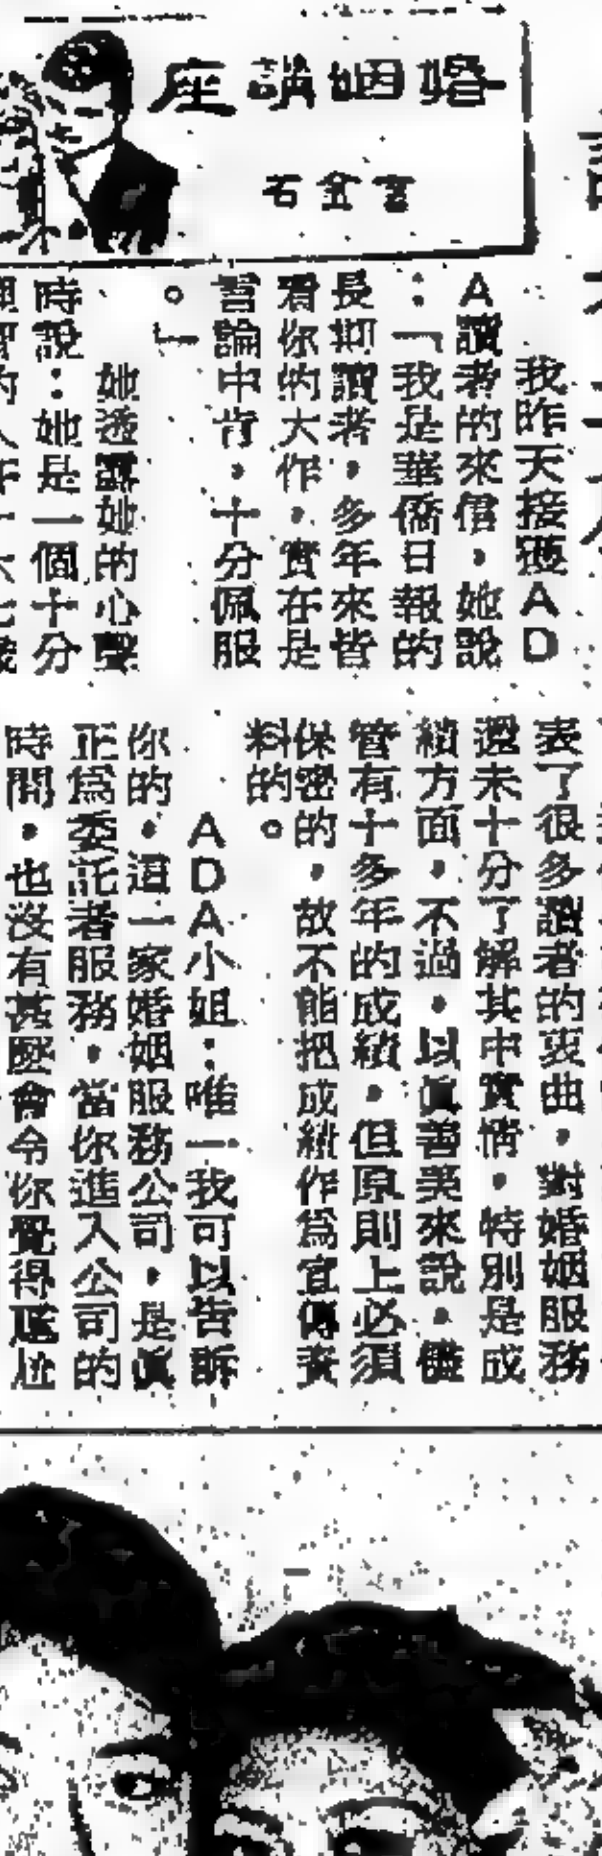 婚姻講座
石金言
我昨天接獲AD
A讀者的來信，她說
：「我是華僑日報的
長期讀者，多年來皆
看你的大作，實在是
言論中肯，十分佩服
。」
她透露她的心聲
時說：她是一個十分
表了很多讀者的衷曲，對婚姻服務
還未十分了解其中實情，特別是成
績方面，不過，以真善美來說，儘
管有十多年的成績，但原則上必須
保密的，故不能把成績作為宣傳資
料的。
ADA小姐：唯一我可以告訴
你的，這一家婚姻服務公司，是真
正為委託者服務，當你進入公司的
時間，也沒有甚麼會令你覺得尷尬